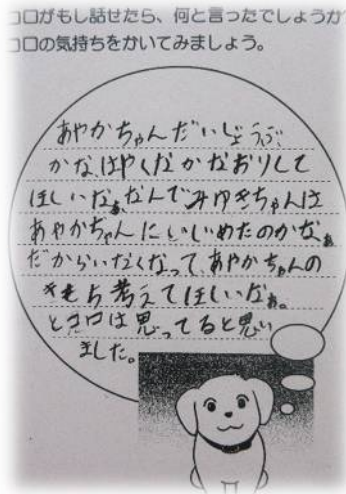 コロがもし話せたら、何と言ったでしょうか
コロの気持ちをかいてみましょう。
あやかちゃんだいじょうぶ
かな、はやくなかなおりして
ほしいなぁ。なんでみゆきちゃんは
あやかちゃんにいじめたのかなぁ
だからいなくなって、あやかちゃんの
きもち考えてほしいなぁ。
とコロは思ってると思い
ました。